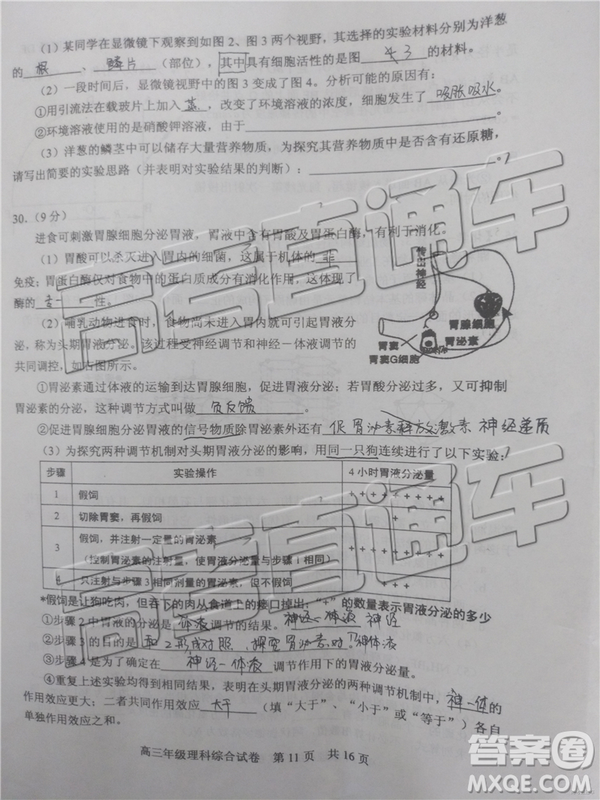 (1)某同学在显微镜下观察到如图2、图3两个视野，其选择的实验材料分别为洋葱
的 根 、 鳞片 (部位)，其中具有细胞活性的是图 4 3 的材料。
(2)一段时间后，显微镜视野中的图3变成了图4。分析可能的原因有：
①用引流法在载玻片上加入 蒸 ，改变了环境溶液的浓度，细胞发生了 吸胀吸水 。
②环境溶液使用的是硝酸钾溶液，由于
(3)洋葱的鳞茎中可以储存大量营养物质，为探究其营养物质中是否含有还原糖，
请写出简要的实验思路(并表明对实验结果的判断)：
30.(9分)
进食可刺激胃腺细胞分泌胃液，胃液中含有胃酸及胃蛋白酶，有利于消化。
(1)胃酸可以杀灭进入胃内的细菌，这属于机体的 非
免疫；胃蛋白酶仅对食物中的蛋白质成分有消化作用，这体现了
酶的 专一 性。
(2)哺乳动物进食时，食物尚未进入胃内就可引起胃液分
泌，称为头期胃液分泌。该过程受神经调节和神经—体液调节的
共同调控，如右图所示。
传出神经
胃腺细胞
胃窦
胃泌素
胃窦G细胞
①胃泌素通过体液的运输到达胃腺细胞，促进胃液分泌；若胃酸分泌过多，又可抑制
胃泌素的分泌，这种调节方式叫做 负反馈 。
②促进胃腺细胞分泌胃液的信号物质除胃泌素外还有 促胃泌素释放激素 神经递质
(3)为探究两种调节机制对头期胃液分泌的影响，用同一只狗连续进行了以下实验：
步骤 实验操作 4小时胃液分泌量
1 假饲
2 切除胃窦，再假饲
3 假饲，并注射一定量的胃泌素
(控制胃泌素的注射量，使胃液分泌量与步骤1相同)
4 只注射与步骤3相同剂量的胃泌素，但不假饲
*假饲是让狗吃肉，但吞下的肉从食道上的接口掉出；“+”的数量表示胃液分泌的多少
①步骤2中胃液的分泌是 体液 调节的结果。 神经-体液 神经
②步骤3的目的是 和2形成对照，探究胃泌素对
③步骤4是为了确定在 神经-体液 调节作用下的胃液分泌量。
④重复上述实验均得到相同结果，表明在头期胃液分泌的两种调节机制中， 神-体 的
作用效应更大；二者共同作用效应 大于 (填“大于”、“小于”或“等于”)各自
单独作用效应之和。
高三年级理科综合试卷 第11页 共16页
高考直通车
高考直通车
答案圈
MXQE.COM